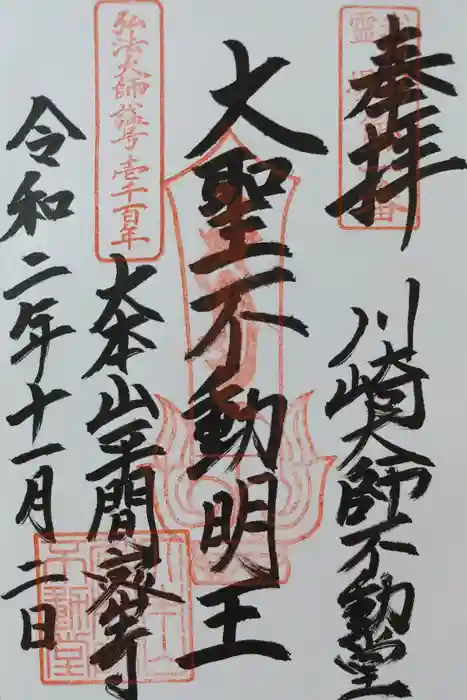 奉拝
川崎大師不動堂
大聖不動明王
弘法大師諡号壱千百年
大本山平間寺
令和二年十一月二日
不動堂